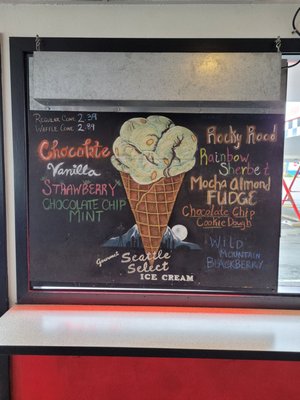 Regular Cone 2.39
Waffle Cone 2.89
Chocolate
Vanilla
Strawberry
Chocolate Chip
Mint
Rocky Road
Rainbow
Sherbet
Mocha Almond
Fudge
Chocolate Chip
Cookie Dough
Wild
Mountain
Blackberry
Gourmet
Seattle
Select
Ice Cream